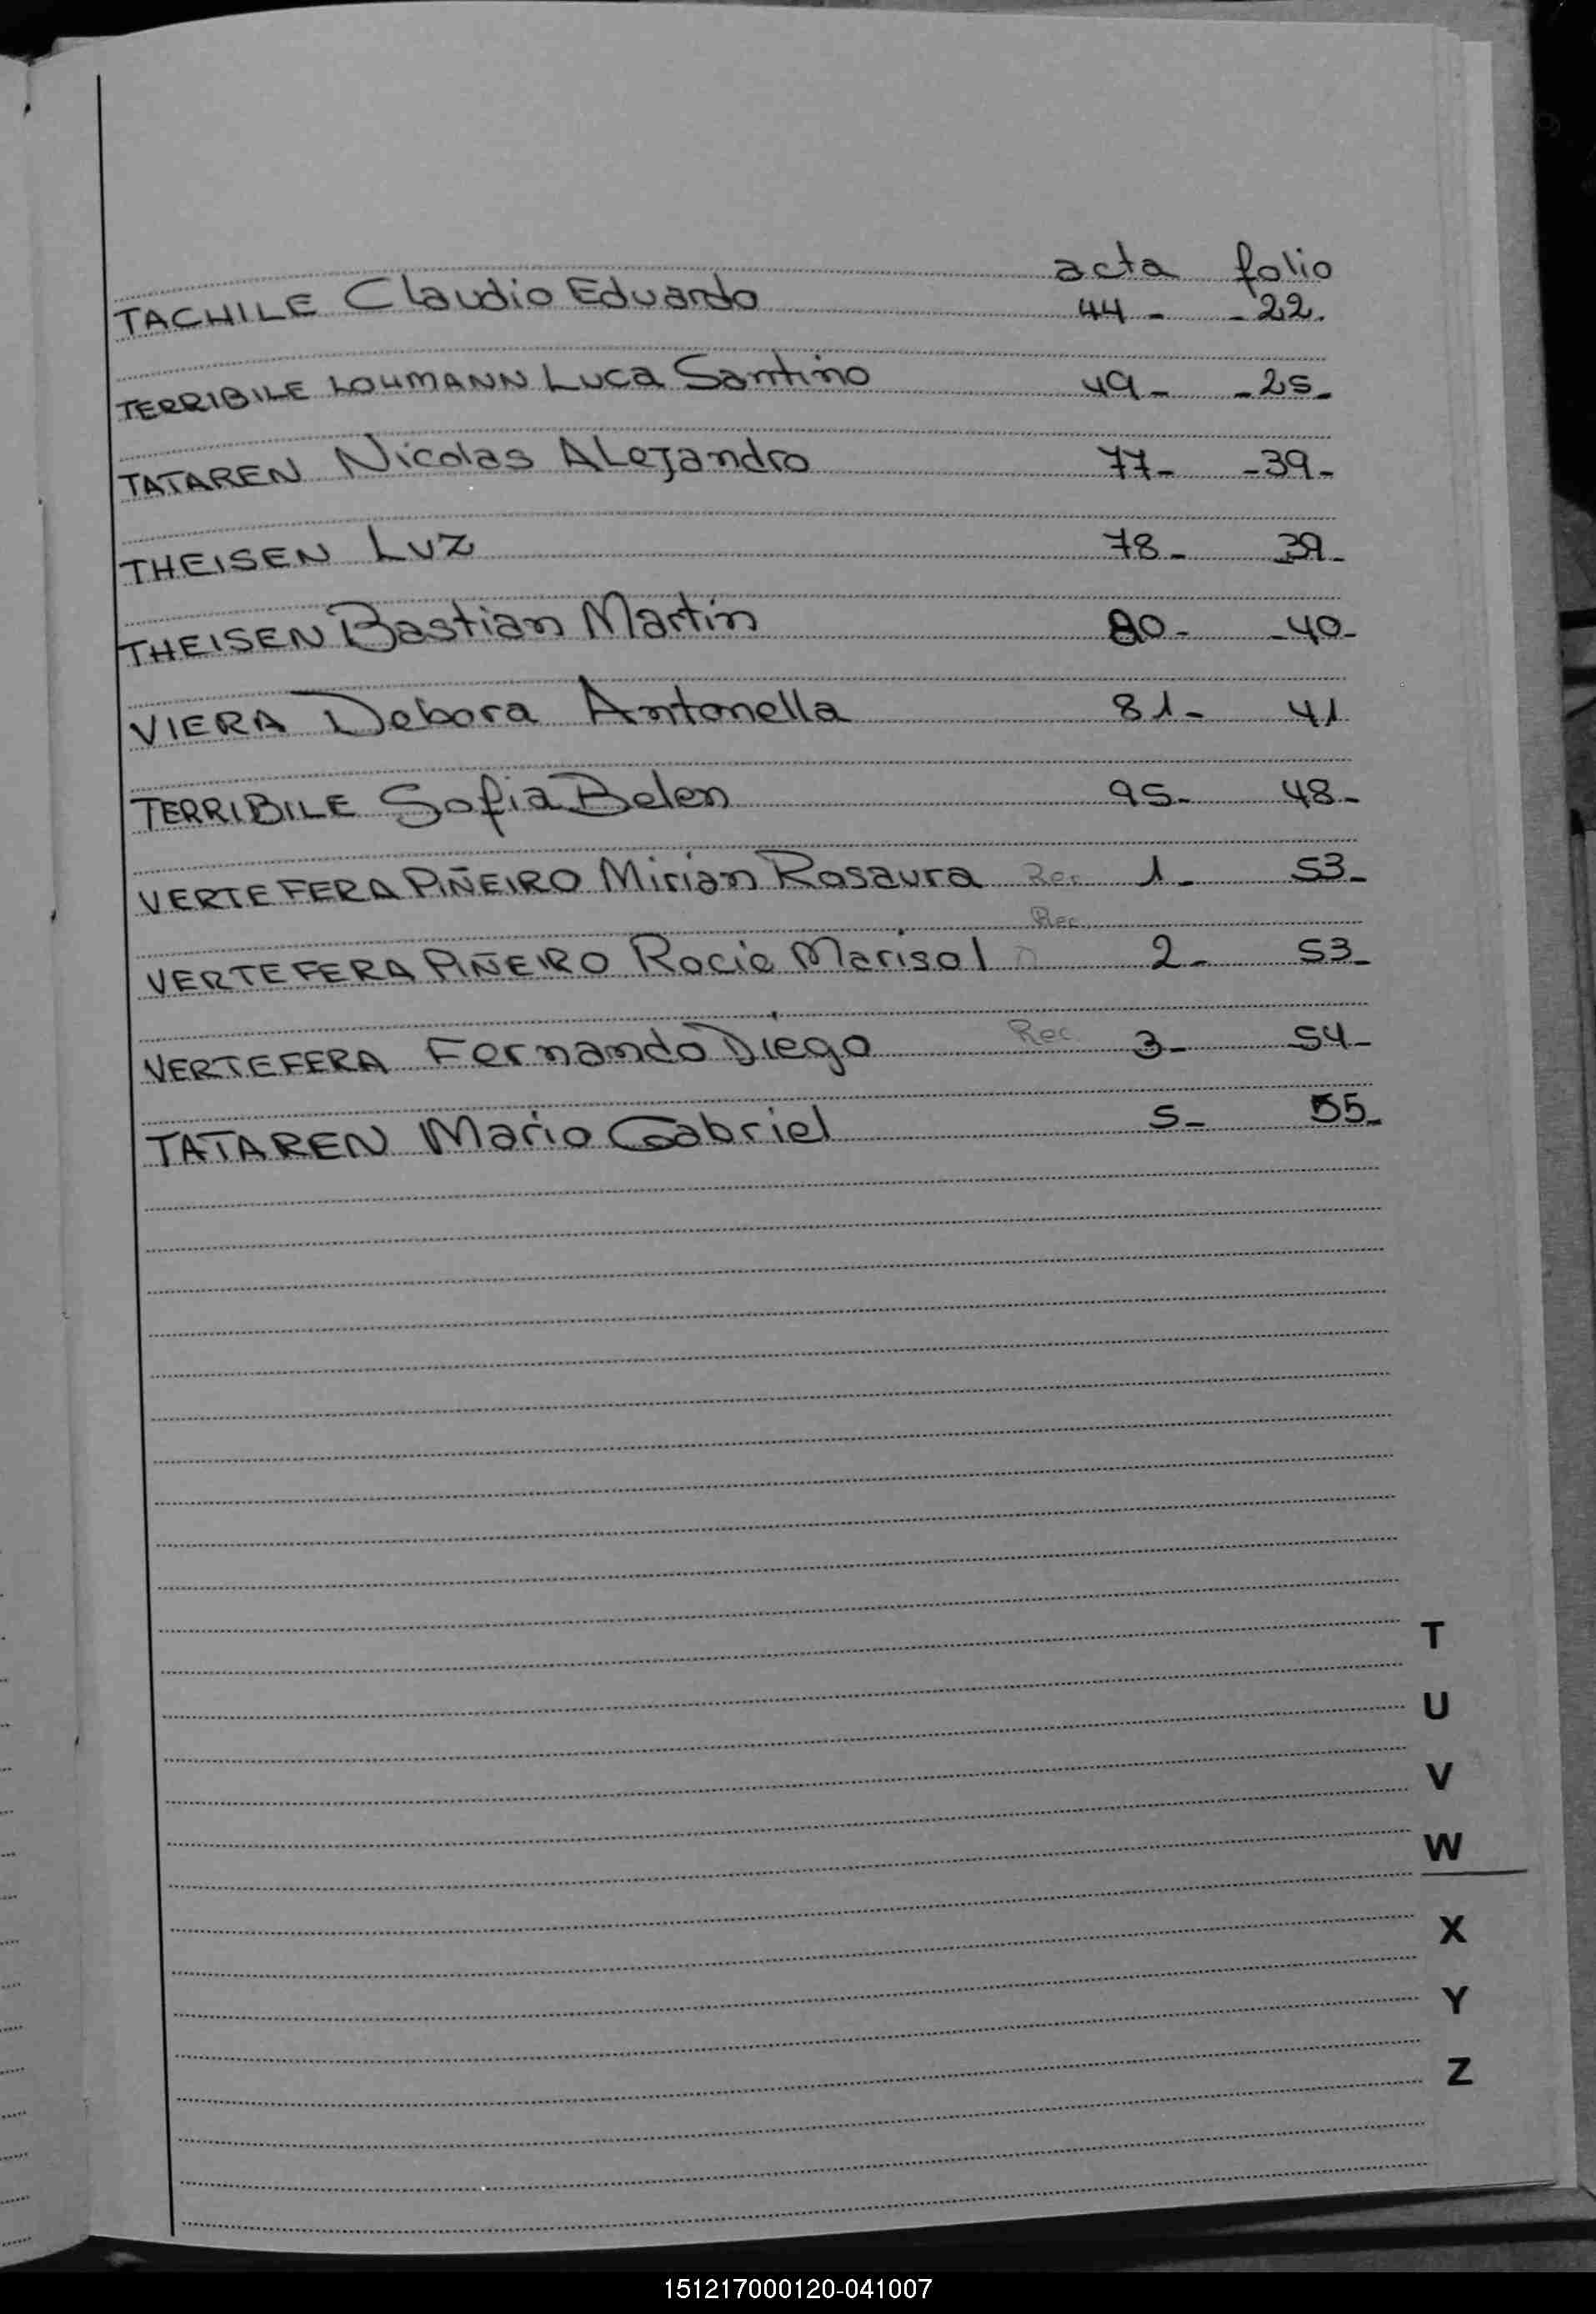 acta folio
TACHILE Claudio Eduardo 44 - - 22.
TERRIBILE LOHMANN Luca Santino 49 - - 25 -
TATAREN Nicolas ALejandro 77 - - 39 -
THEISEN Luz 78 - 39 -
THEISEN Bastian Martín 80 - - 40 -
VIERA Debora Antonella 81 - 41
TERRIBILE Sofia Belen 95 - 48 -
VERTEFERA PIÑEIRO Mirian Rosaura Rec 1 - 53 -
Rec
VERTEFERA PIÑEIRO Rocio Marisol 2 - 53 -
VERTEFERA Fernando Diego Rec 3 - 54 -
TATAREN Mario Gabriel 5 - 55 -
T
U
V
W
X
Y
Z
151217000120-041007